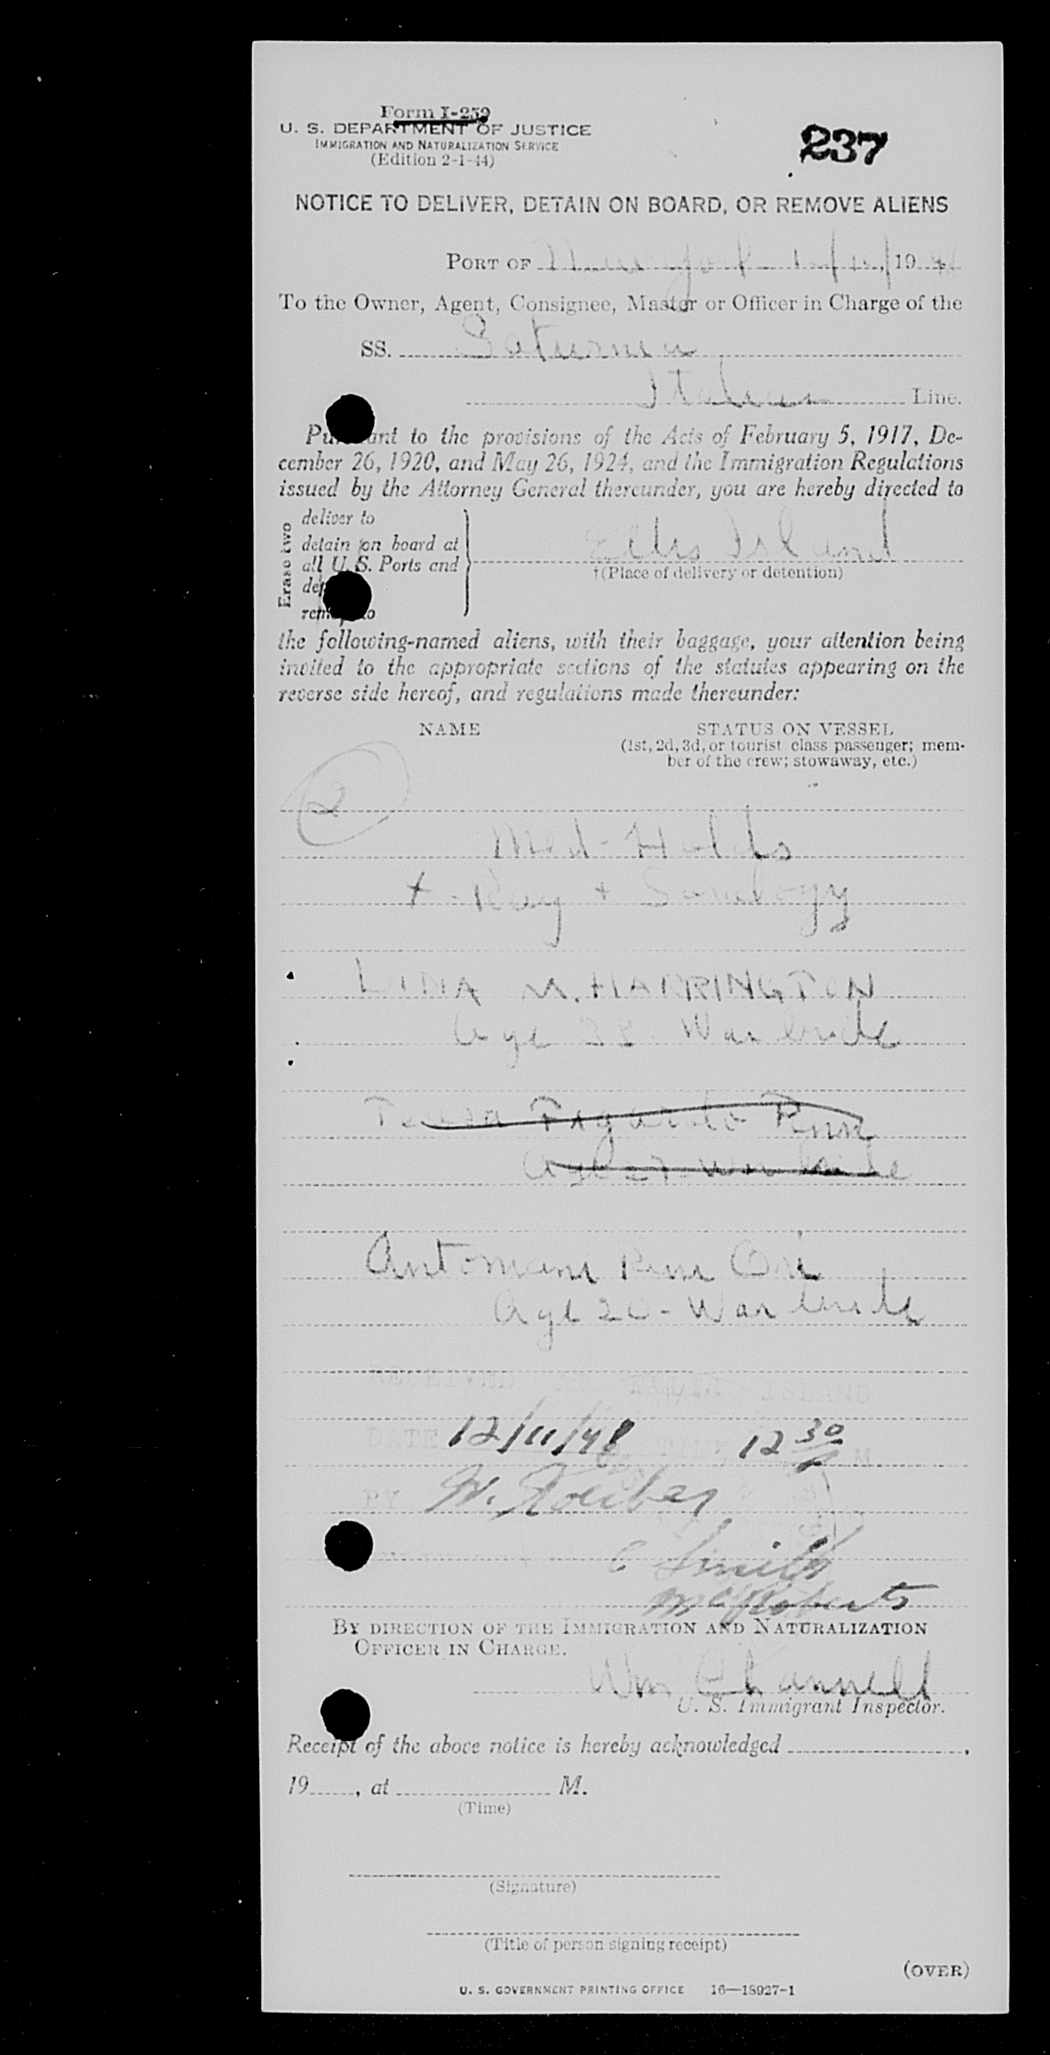 Form I-259
U. S. DEPARTMENT OF JUSTICE
IMMIGRATION AND NATURALIZATION SERVICE
(Edition 2-1-44)
237
NOTICE TO DELIVER, DETAIN ON BOARD, OR REMOVE ALIENS
PORT OF New York 19
To the Owner, Agent, Consignee, Master or Officer in Charge of the
SS. Saturnia
Italian Line.
Pursuant to the provisions of the Acts of February 5, 1917, De-
cember 26, 1920, and May 26, 1924, and the Immigration Regulations
issued by the Attorney General thereunder, you are hereby directed to
Erase two
deliver to
detain on board at
all U. S. Ports and
remove to
Ellis Island
†(Place of delivery or detention)
the following-named aliens, with their baggage, your attention being
invited to the appropriate sections of the statutes appearing on the
reverse side hereof, and regulations made thereunder:
NAME STATUS ON VESSEL
(1st, 2d, 3d, or tourist class passenger; mem-
ber of the crew; stowaway, etc.)
2
Med-Holds
X-Ray +
LINA M. HARRINGTON
Age 38 War bride
War bride
Age 20 - War bride
RECEIVED ELLIS ISLAND
DATE 12/11/48 TIME 12 30 P M
BY W.
C Smith
BY DIRECTION OF THE IMMIGRATION AND NATURALIZATION
OFFICER IN CHARGE.
Wm Channell
U. S. Immigrant Inspector.
Receipt of the above notice is hereby acknowledged ,
19 , at M.
(Time)
(Signature)
(Title of person signing receipt)
(OVER)
U. S. GOVERNMENT PRINTING OFFICE 16—18927-1